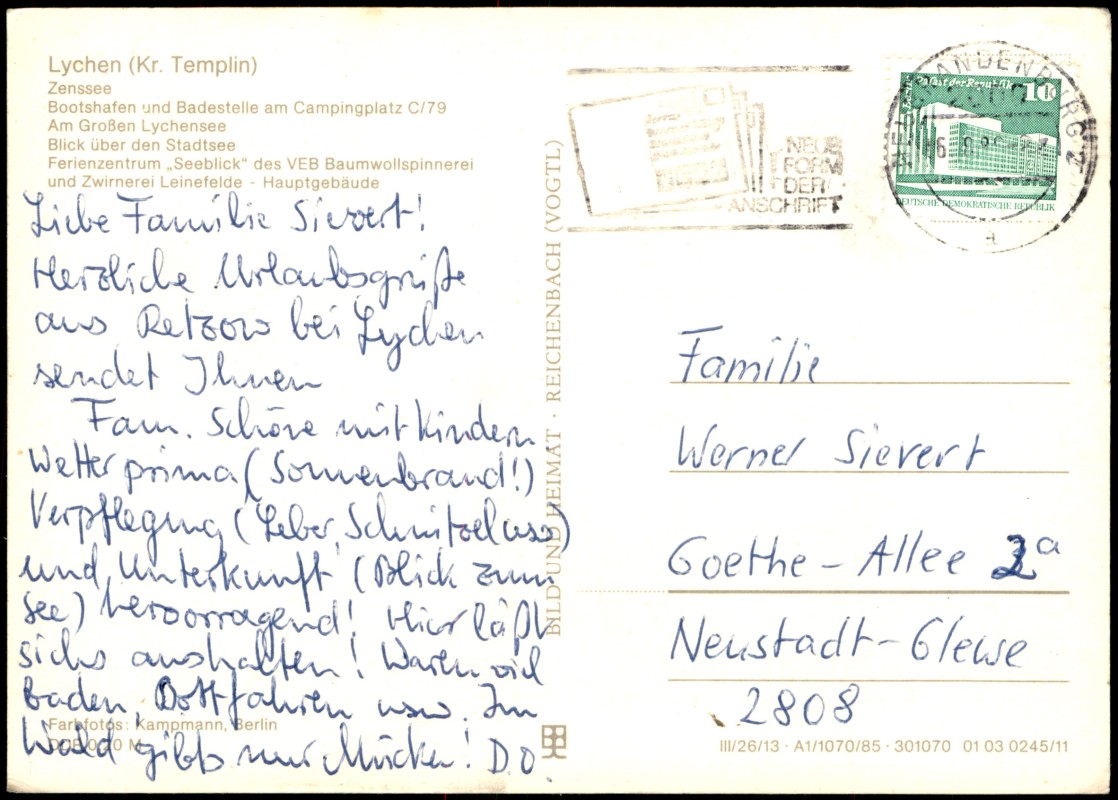 Lychen (Kr. Templin)
Zenssee
Bootshafen und Badestelle am Campingplatz C/79
Am Großen Lychensee
Blick über den Stadtsee
Ferienzentrum „Seeblick“ des VEB Baumwollspinnerei
und Zwirnerei Leinefelde - Hauptgebäude
Liebe Familie Sievert!
Herzliche Urlaubsgrüße
aus Retzow bei Lychen
sendet Ihnen
Fam. Schöne mit Kindern
Wetter prima (Sonnenbrand!)
Verpflegung (Leber, Schnitzel usw)
und Unterkunft (Blick zum
See) hervorragend! Hier läßt
sichs aushalten! Waren viel
baden, Bootfahren usw. Im
Wald gibts nur Mücken! D.O.
Farbfotos: Kampmann, Berlin
BILD UND HEIMAT · REICHENBACH (VOGTL)
NEUE
FORM
DER
ANSCHRIFT
NEUBRANDENBURG
Palast der Republik
10
DEUTSCHE DEMOKRATISCHE REPUBLIK
a
Familie
Werner Sievert
Goethe-Allee 3a
Neustadt-Glewe
2808
III/26/13 · A1/1070/85 · 301070 01 03 0245/11